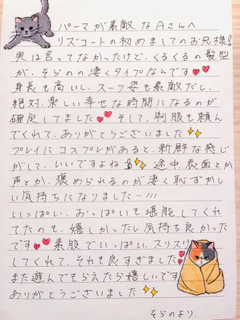 パーマが素敵なAさんへ
リズコートの初めましてのお兄様!
実は言ってなかったけど、くるくるの髪型
が、そらのの凄くタイプなんです
身長も高いし、スーツ姿も素敵だし、
絶対、楽しい幸せな時間になるのが
確定してました そして、制服も頼ん
でくれて、ありがとうございました
プレイにコスプレがあると、新鮮な感じ
がして、いいですよね 途中、表面とか
声とか、褒められるのが凄く恥ずかしい
気持ちになりました…///
いっぱい、おっぱいも堪能してくれ
てたのも、嬉しかったし気持ち良かった
です 素股でいっぱい、スリスリ
してくれて、それも良すぎました
また遊んでもらえたら嬉しいです
ありがとうございました
そらのより